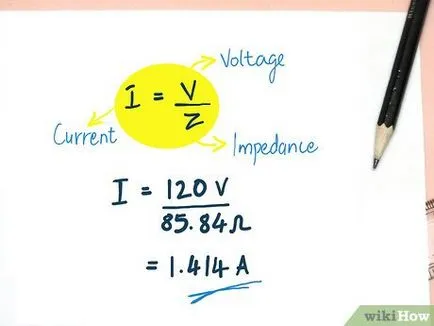 Voltage
I = V/Z
Current
Impedance
I = 120 V
85.84 Ω
= 1.414 A
wikiHow